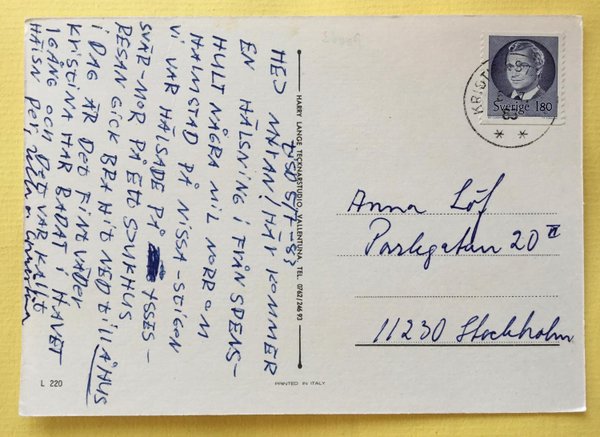 TISD 5/7-83
HEJ MAYAN! HÄR KOMMER
EN HÄLSNING IFRÅN SPENS-
HULT NÅGRA MIL NORR OM
HALMSTAD PÅ NISSA-STIGEN
VI VAR HÄLSADE PÅ LASSES-
SVÄR-MOR PÅ ETT SJUKHUS
RESAN GICK BRA HIT NED TILL ÅHUS
I DAG ÄR DET FINT VÄDER
KRISTINA HAR BADAT I HAVET
1 GÅNG OCH DET VAR KALLT
HÄLSN Per,
HARRY LANGE TECKNARSTUDIO, VALLENTUNA, TEL. 0762/246 93
L 220
PRINTED IN ITALY
Sverige 180
KRIST
83
Anna Löf
Parkgatan 20 II
11230 Stockholm